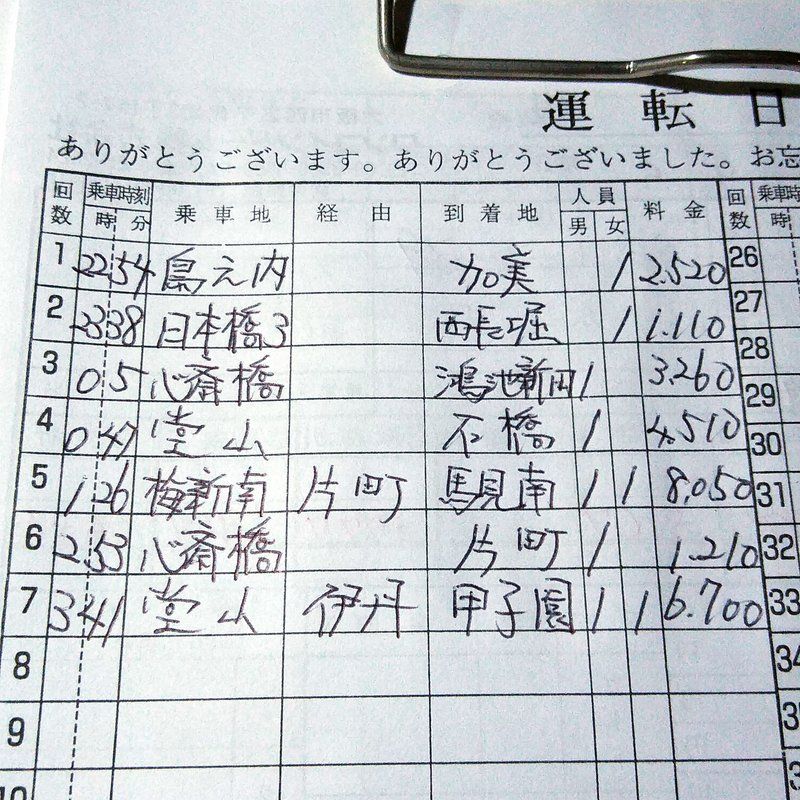 運 転 日
ありがとうございます。ありがとうございました。お忘
回数 乗車時刻 時 分 乗車地 経由 到着地 人員 男 女 料金 回数 乗車時 時
1 22 54 島之内 加美 1 2.520 26
2 23 38 日本橋3 西長堀 1 1.110 27
3 0 5 心斎橋 鴻池新田 1 3.260 28
4 0 47 堂山 石橋 1 4.510 29
5 1 26 梅新南 片町 馬見南 1 1 8.050 30
6 2 53 心斎橋 片町 1 1.210 31
7 3 41 堂山 伊丹 甲子園 1 1 6.700 32
8 33
9 34
10